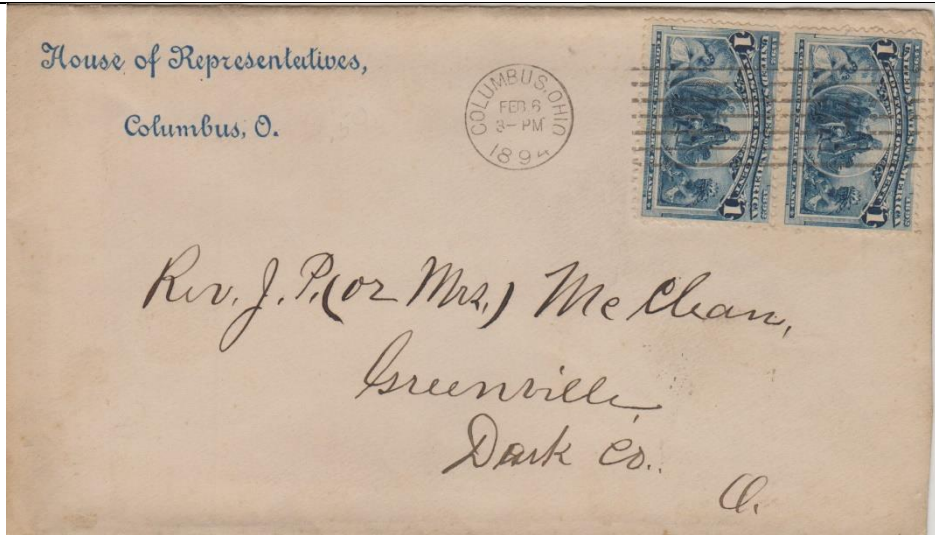 House of Representatives,
Columbus, O.
COLUMBUS, OHIO
FEB 6
3- PM
1894
1 1
1 1
Rev. J. P. (or Mrs.) McClean,
Greenville,
Dark Co..
O.